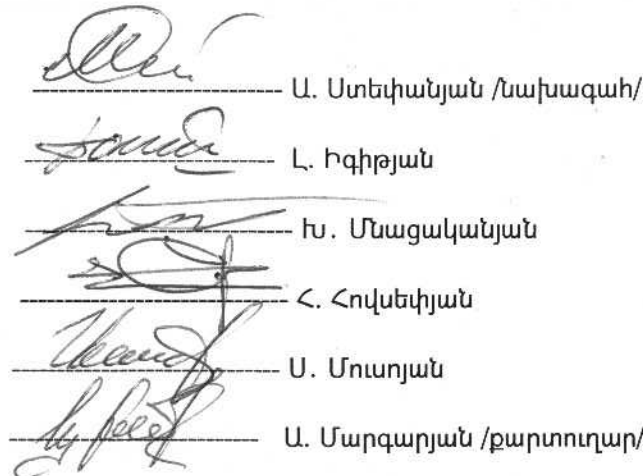 Ա. Ստեփանյան /նախագահ/
Լ. Իգիթյան
Խ. Մնացականյան
Հ. Հովսեփյան
Ս. Մուսոյան
Ա. Մարգարյան /քարտուղար/